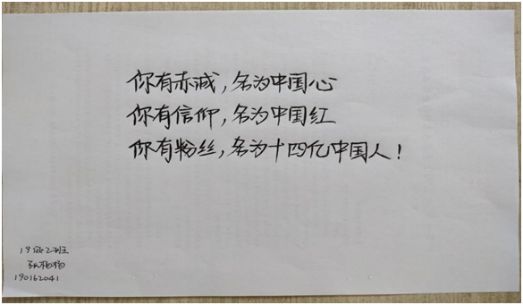 你有赤诚，名为中国心
你有信仰，名为中国红
你有粉丝，名为十四亿中国人！
杨杨
190162041